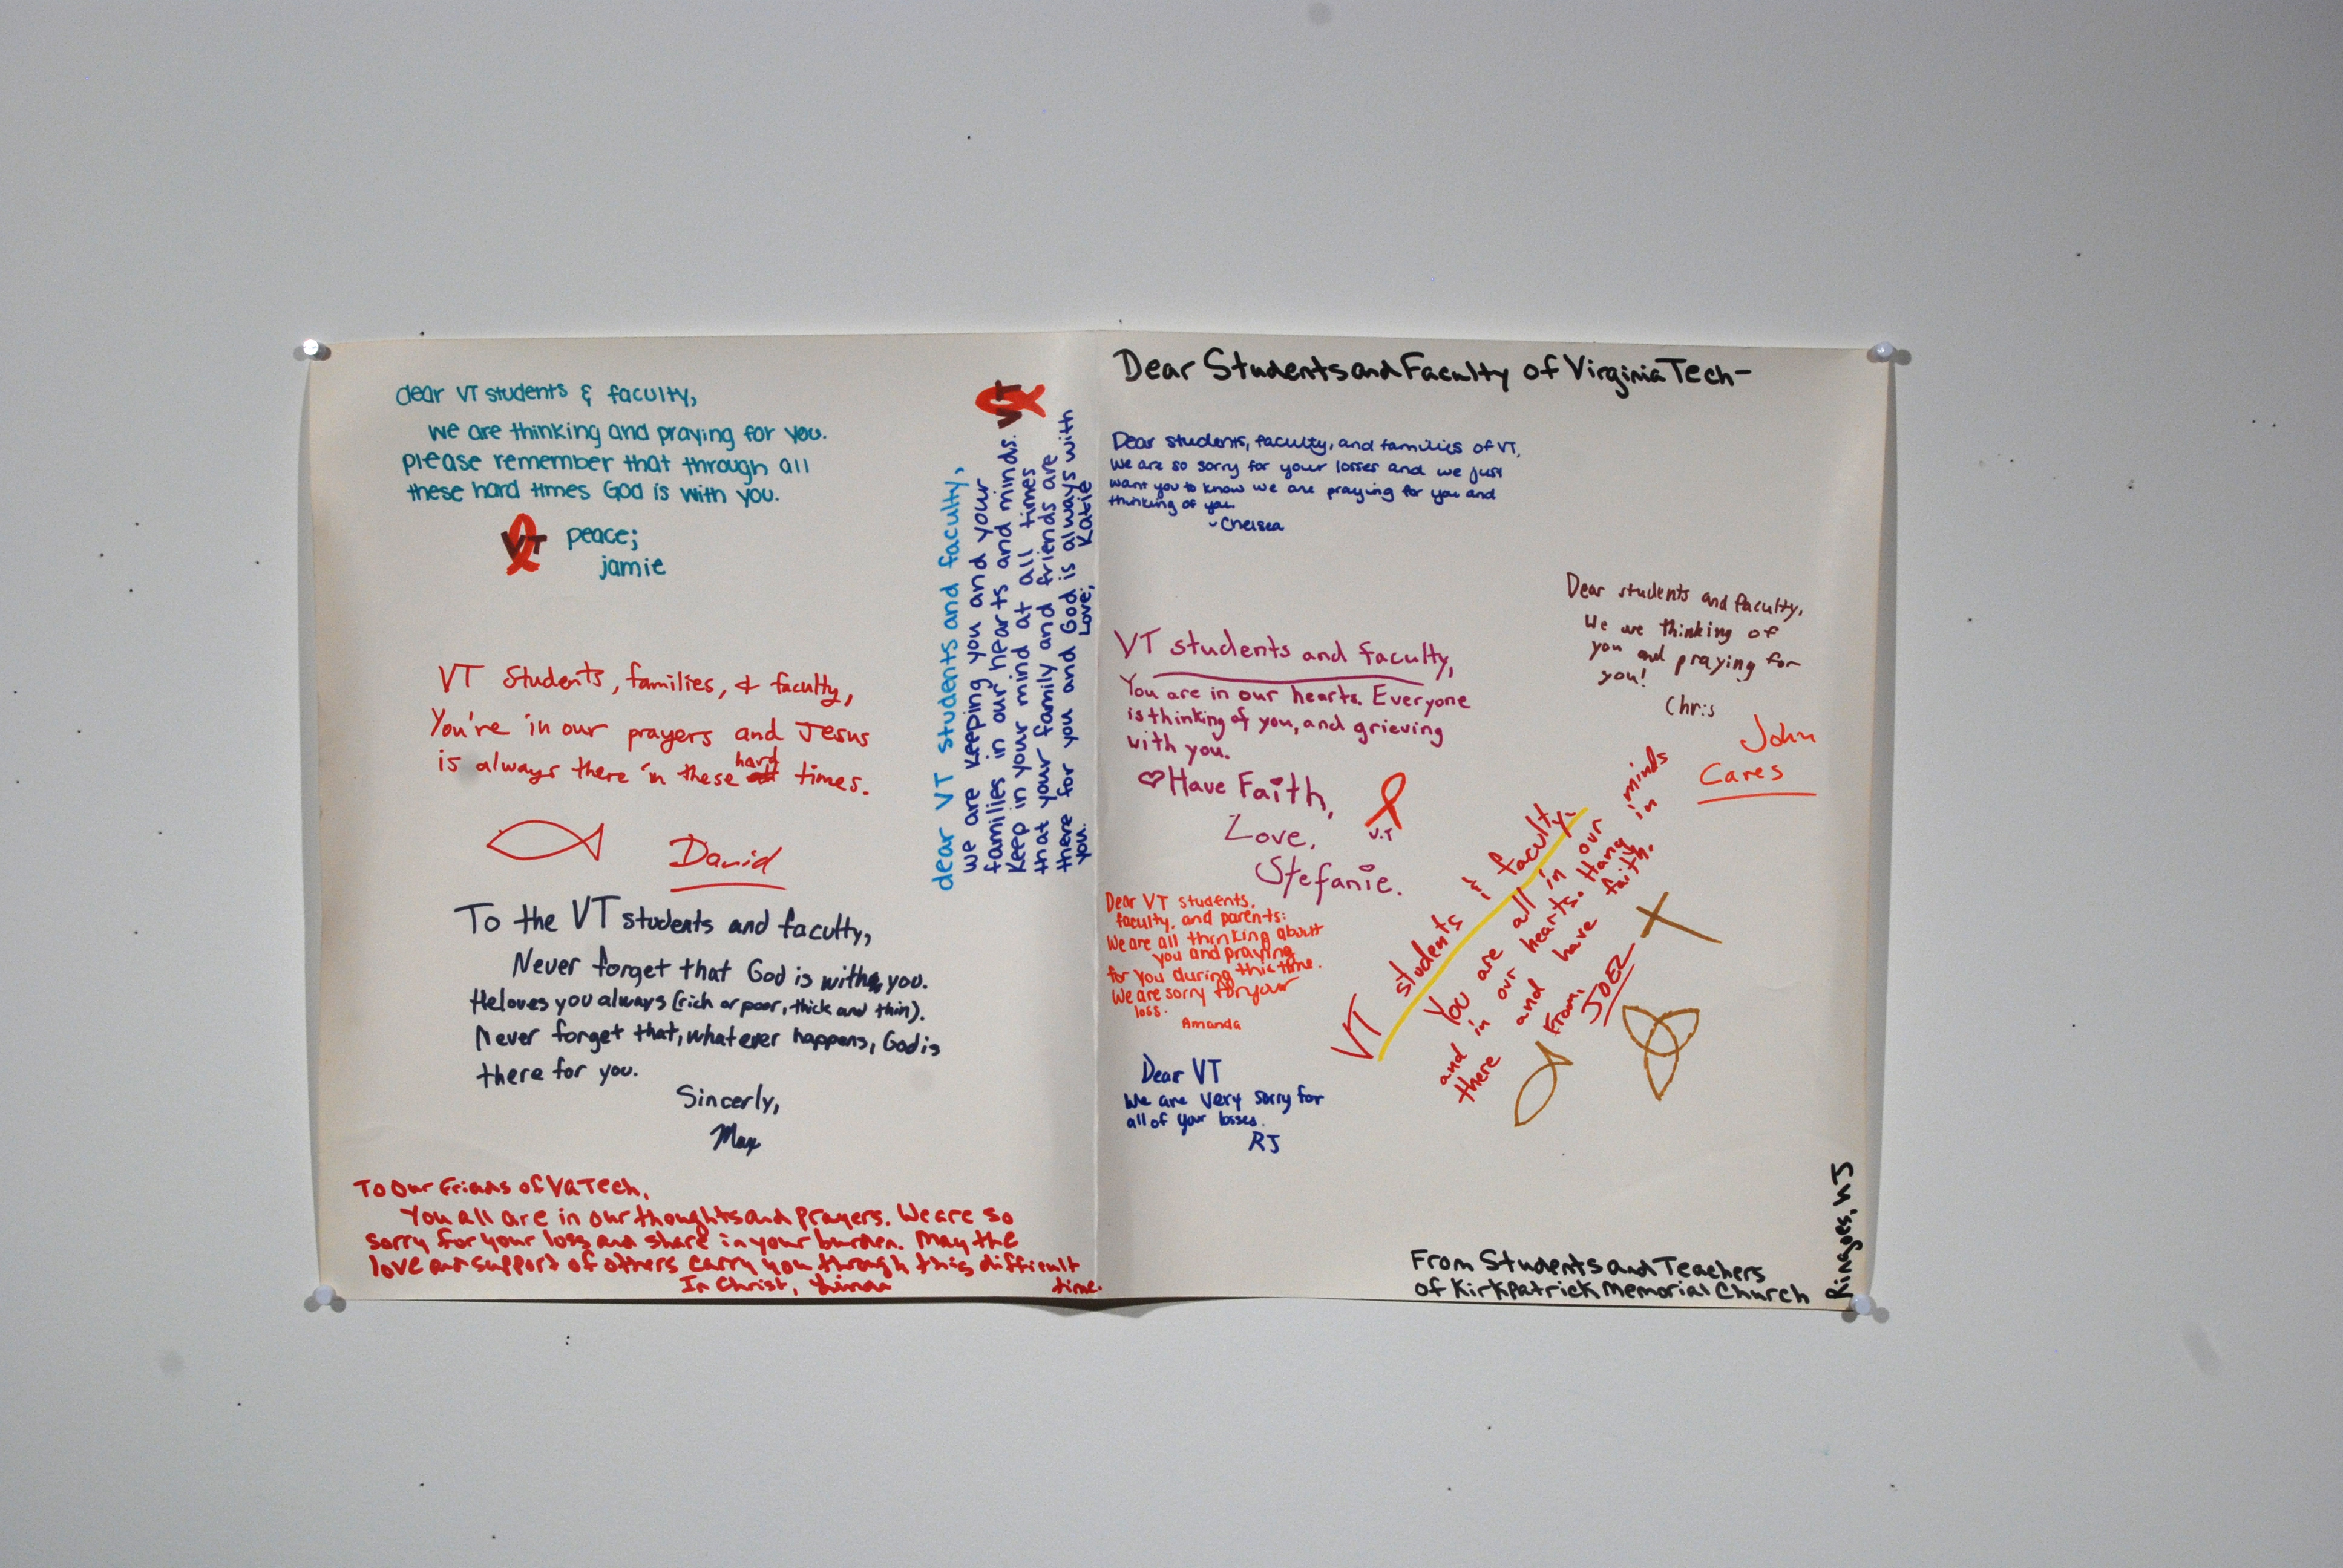 dear VT students & faculty,
we are thinking and praying for you.
please remember that through all
these hard times God is with you.
VT
peace;
jamie
VT Students, families, & faculty,
You're in our prayers and Jesus
is always there in these hard times.
David
To the VT students and faculty,
Never forget that God is with you.
He loves you always (rich or poor, thick and thin).
Never forget that, whatever happens, God is
there for you.
Sincerely,
Max
To Our Friends of VA Tech,
You all are in our thoughts and prayers. We are so
sorry for your loss and share in your burden. May the
love and support of others carry you through this difficult
time.
In Christ, Linda
VT
dear VT students and faculty,
we are keeping you and your
families in our hearts and minds.
Keep in your mind at all times
that your family and friends are
there for you and God is always with
you.
Love, Katie
Dear Students and Faculty of Virginia Tech-
Dear students, faculty, and families of VT,
We are so sorry for your losses and we just
want you to know we are praying for you and
thinking of you
-Chelsea
Dear students and faculty,
We are thinking of
you and praying for
you!
Chris
John
Cares
VT students and faculty,
You are in our hearts. Everyone
is thinking of you, and grieving
with you.
Have Faith,
Love,
Stefanie.
V.T
Dear VT students,
faculty, and parents:
We are all thinking about
you and praying
for you during this time.
We are sorry for your
loss.
Amanda
Dear VT
We are very sorry for
all of your losses.
RJ
VT students & faculty,
You are all in our minds
and in our hearts. Hang in
there and have faith.
From,
JOEL
From Students and Teachers
of Kirkpatrick Memorial Church
Ringoes, NJ